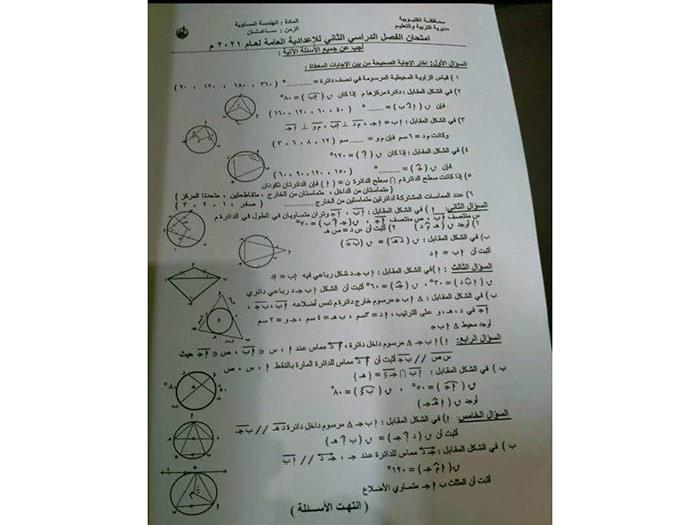 محافظة القليوبية
مديرية التربية والتعليم
المادة : الهندسة المستوية
الزمن : ساعتان
امتحان الفصل الدراسي الثاني للإعدادية العامة لعام ٢٠٢١ م
أجب عن جميع الأسئلة الآتية :
السؤال الأول: اختر الإجابة الصحيحة من بين الإجابات المعطاة :
١ ) قياس الزاوية المحيطية المرسومة في نصف دائرة = ............° ( ٣٦٠ ، ١٨٠ ، ١٢٠ ، ٩٠ )
٢) في الشكل المقابل : دائرة مركزها م إذا كان ق ( أب ) = ٨٠°
فإن ق ( أ م ب ) = ........° ( ٤٠ ، ٦٠ ، ١٢٠ ، ١٦٠ )
٣) في الشكل المقابل : أب = أجـ ، م د ⊥ أب ، م و ⊥ أجـ
وكانت م د = ٦ سم فإن م و = ...... سم ( ١٢ ، ٨ ، ٦ ، ٣ )
٤) في الشكل المقابل : إذا كان ق ( أ ) = ١٢٠°
فإن ق ( جـ ) = ........° ( ٦٠ ، ٩٠ ، ١٢٠ ، ١٥٠ )
٥) إذا كانت سطح الدائرة م ∩ سطح الدائرة ن = { أ } فإن الدائرتان تكونان
( متماستان من الداخل ، متماستان من الخارج ، متقاطعتين ، متحدتا المركز )
٦) عدد المماسات المشتركة لدائرتين متماستان من الخارج ............ ( صفر ، ١ ، ٢ ، ٣ )
السؤال الثاني: أ ) في الشكل المقابل : أب ، أجـ وتران متساويان في الطول في الدائرة م
س منتصف أب ، ص منتصف أجـ ، ق ( جـ أ ب ) = ٧٠°
١) أوجد ق ( هـ م د ) ٢) أثبت أن س د = ص هـ
ب) في الشكل المقابل : ق ( د هـ ) = ق ( ب جـ )
أثبت أن أب = أد
السؤال الثالث : أ )في الشكل المقابل : أ ب جـ د شكل رباعي فيه أب = أد
ق ( أ ب د ) = ٣٠° ، ق ( جـ ) = ٦٠° أثبت أن الشكل أ ب جـ د رباعي دائري
ب ) في الشكل المقابل : Δ أ ب جـ مرسوم خارج دائرة م تمس أضلاعه أب ، ب جـ ،
أجـ في د ، هـ ، و على الترتيب ، أد = ٣سم ، ب هـ = ٤ سم ، جـ و = ٢ سم
أوجد محيط Δ أ ب جـ
السؤال الرابع: أ ) أ ب جـ Δ مرسوم داخل دائرة ، أد مماس عند أ ، س ∈ أب ، ص ∈ أجـ حيث
س ص // ب جـ أثبت أن أد مماس للدائرة المارة بالنقط أ ، س ، ص
ب ) في الشكل المقابل : أب ∩ جـ د = { هـ }
ق ( أجـ ) = ٥٠° ، ق ( ب د ) = ٨٠°
أوجد ق ( أ هـ جـ )
السؤال الخامس: أ) في الشكل المقابل : أ ب جـ Δ مرسوم داخل دائرة د هـ // ب جـ
أثبت أن ق ( د أ جـ ) = ق ( ب أ هـ )
ب ) في الشكل المقابل : جـ د مماس للدائرة عند جـ ، جـ د // أب
ق ( أ م جـ ) = ١٢٠°
أثبت أن المثلث ب أ جـ متساوي الأضلاع
( انتهت الأسئلة )